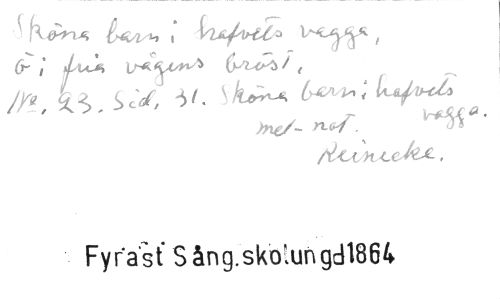 Sköna barn i hafvets vagga,
Ö i fria vågens bröst,
No. 23. Sid. 31. Sköna barn i hafvets
vagga.
mel-not.
Reinecke.
Fyrast Sång.skolungd1864